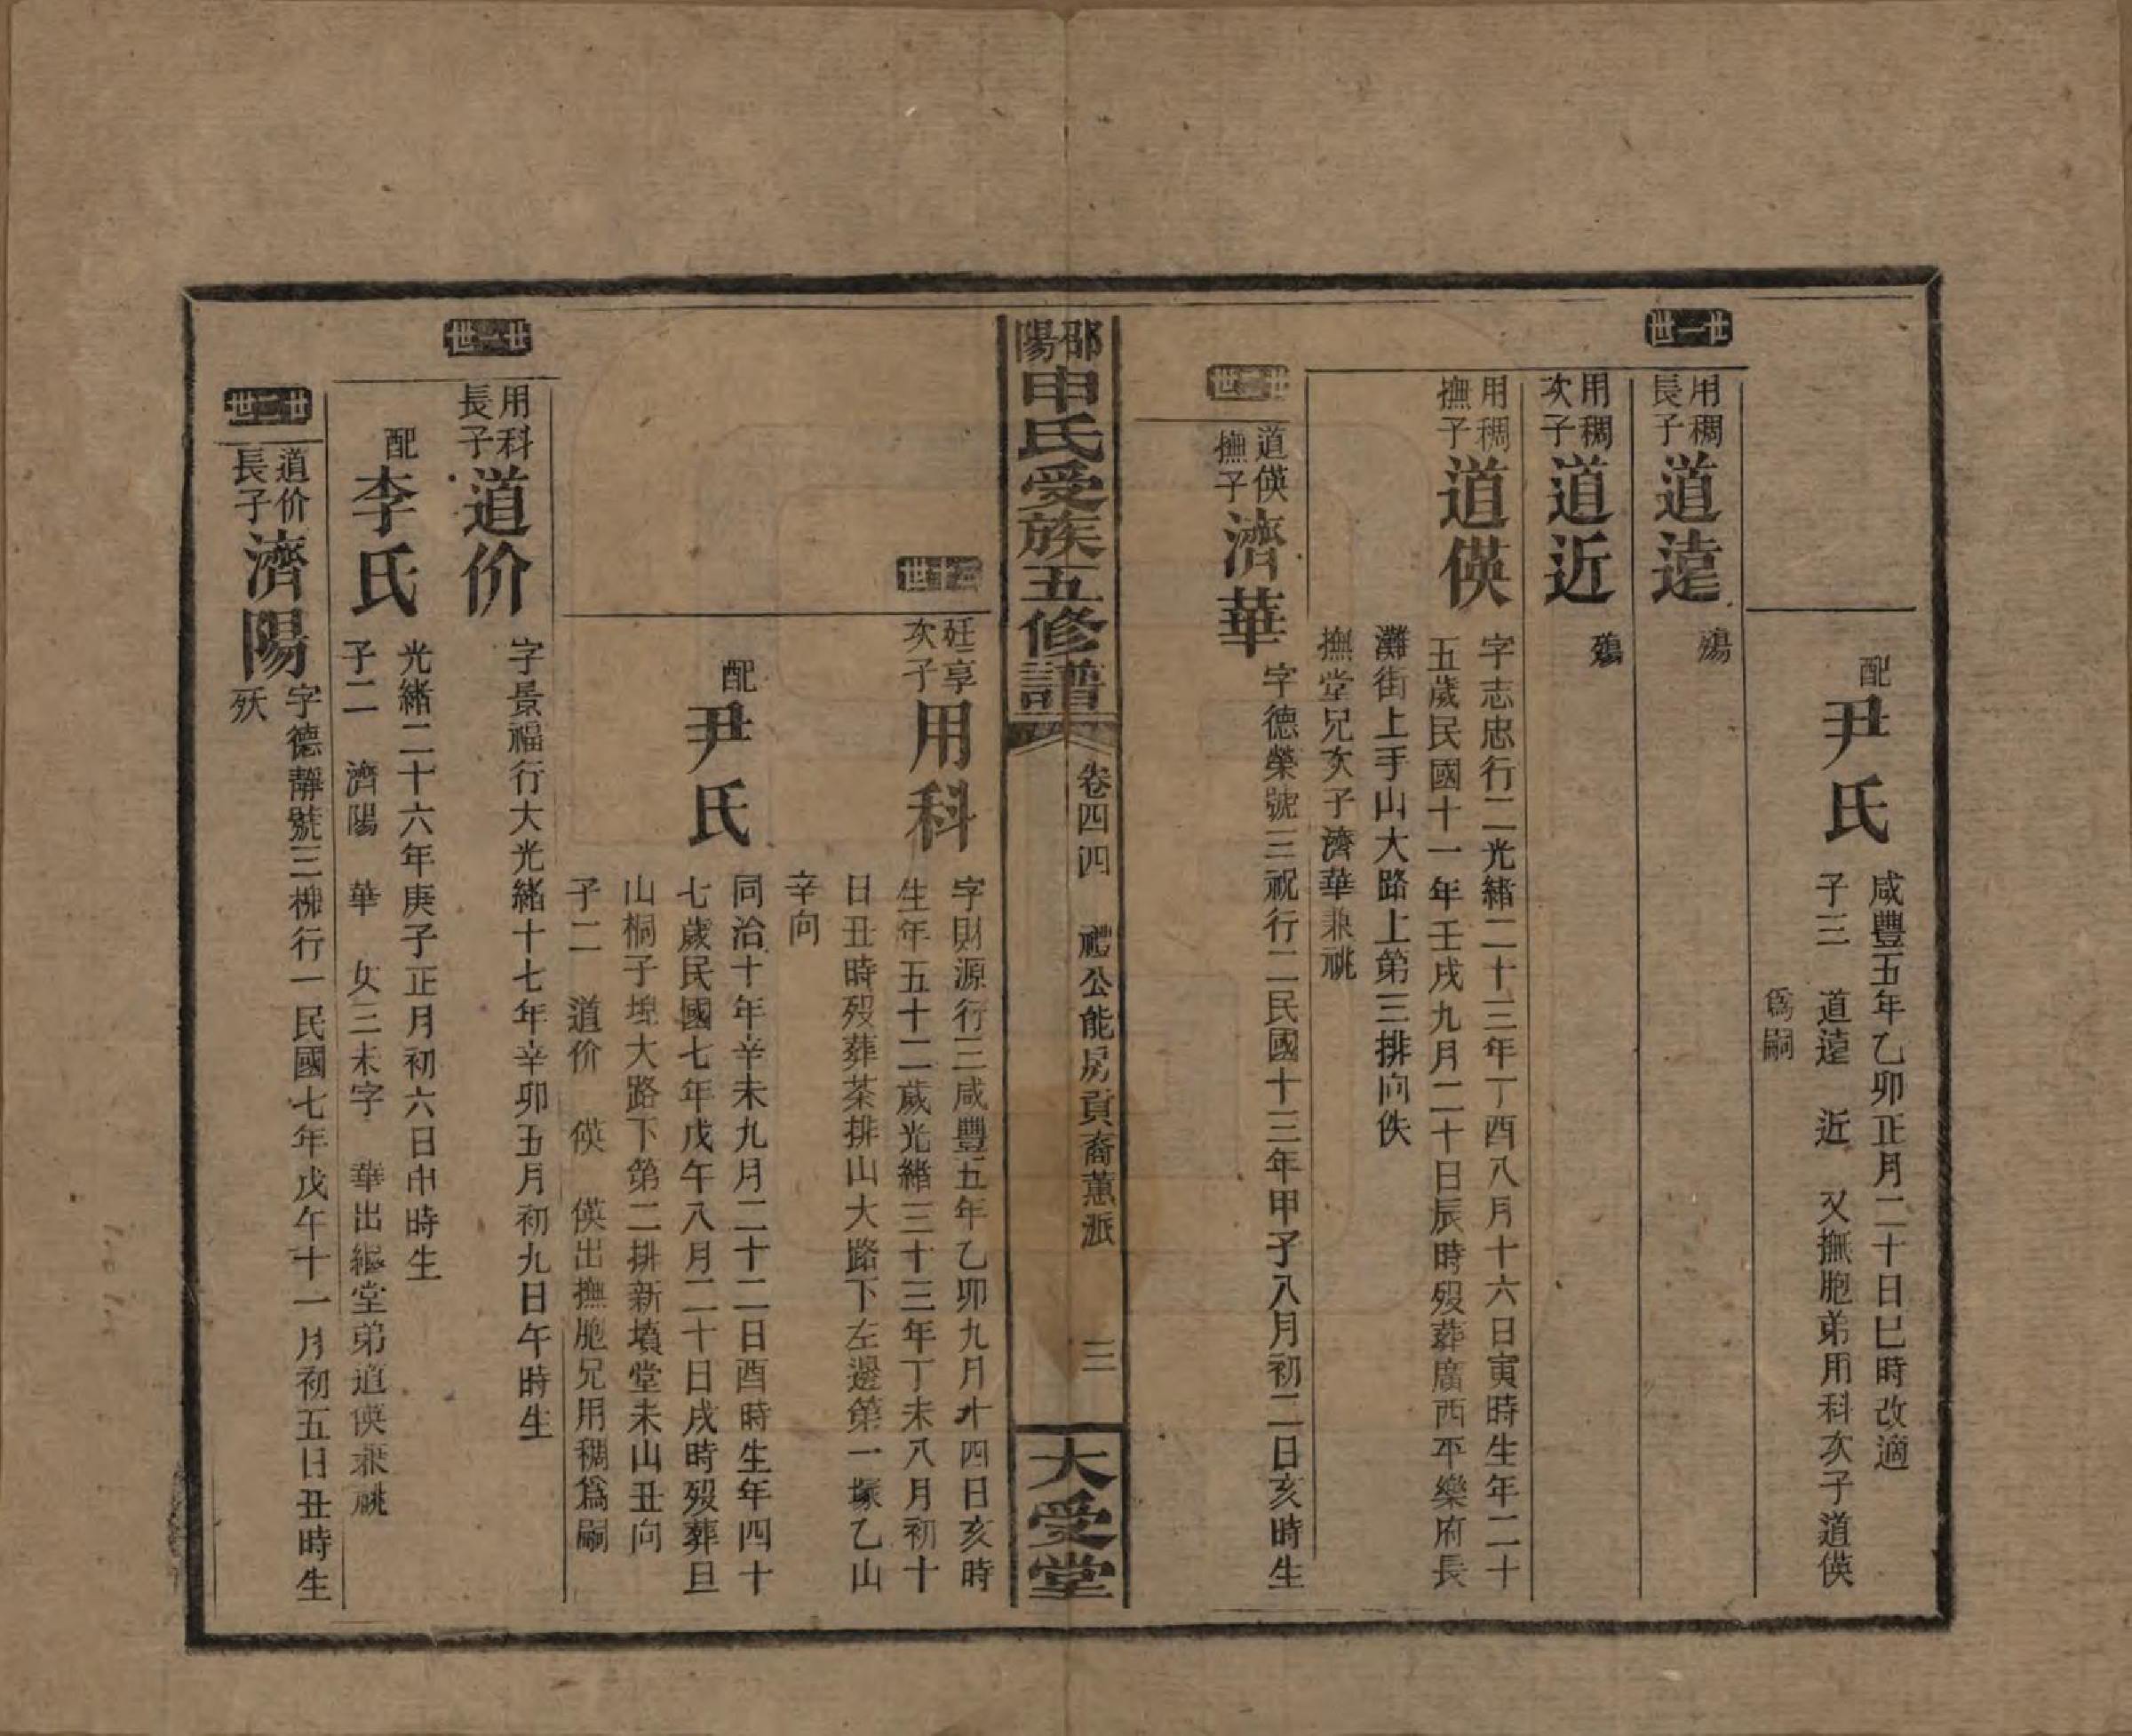 配尹氏
咸豐五年乙卯正月二十日巳時改適
子三　道遠　近　又撫胞弟用科次子道偀
爲嗣
廿一世
用稠長子道遠　殤
用稠次子道近　殤
用稠撫子道偀
字志忠行二光緒二十三年丁酉八月十六日寅時生年二十
五歲民國十一年壬戌九月二十日辰時歿葬廣西平樂府長
灘街上手山大路上第三排向佚
撫堂兄次子濟華兼祧
廿二世
道偀撫子濟華
字德榮號三祝行二民國十三年甲子八月初二日亥時生
邵陽申氏受族五修譜
卷四四　禮公能房貢裔蕙派　三
大受堂
二十世
廷享次子用科
字財源行三咸豐五年乙卯九月十四日亥時
生年五十二歲光緒三十三年丁未八月初十
日丑時歿葬茶排山大路下左邊第一塚乙山
辛向
配尹氏
同治十年辛未九月二十二日酉時生年四十
七歲民國七年戊午八月二十日戌時歿葬旦
山桐子埦大路下第二排新墳堂未山丑向
子二　道价　偀　偀出撫胞兄用稠爲嗣
廿一世
用科長子道价
字景福行大光緒十七年辛卯五月初九日午時生
配李氏
光緒二十六年庚子正月初六日申時生
子二　濟陽　華　女三未字　華出繼堂弟道偀兼祧
廿二世
道价長子濟陽
字德靜號三柳行一民國七年戊午十一月初五日丑時生
殀